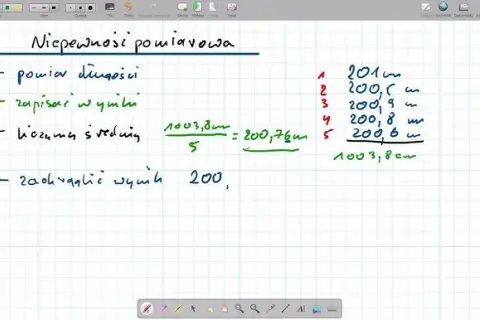 Niepewność pomiarowa
- pomiar długości
- zapisać wyniki
- liczymy średnią 1003,8 cm / 5 = 200,76 cm
- zaokrąglić wynik 200,
1 201 cm
2 200,5 cm
3 200,9 cm
4 200,8 cm
5 200,6 cm
1003,8 cm